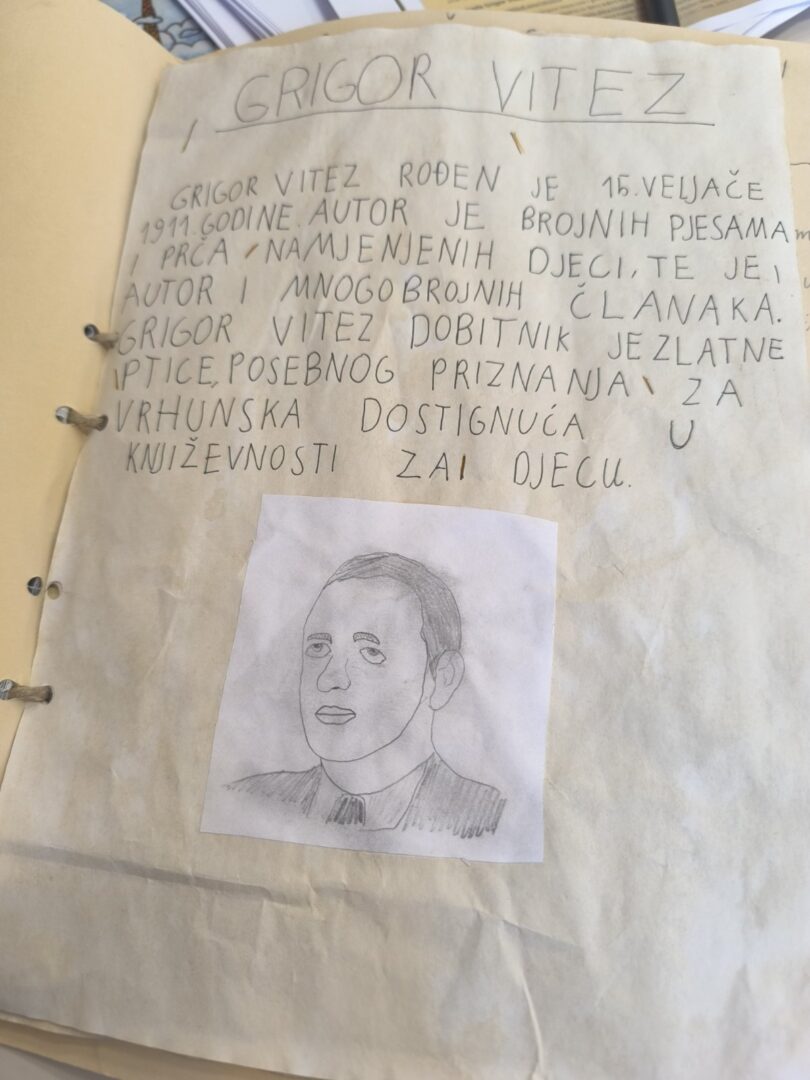 GRIGOR VITEZ
GRIGOR VITEZ ROĐEN JE 15. VELJAČE
1911. GODINE. AUTOR JE BROJNIH PJESAMA
I PRČA NAMJENJENIH DJECI, TE JE
AUTOR I MNOGOBROJNIH ČLANAKA.
GRIGOR VITEZ DOBITNIK JE ZLATNE
PTICE, POSEBNOG PRIZNANJA ZA
VRHUNSKA DOSTIGNUĆA U
KNJIŽEVNOSTI ZA DJECU.